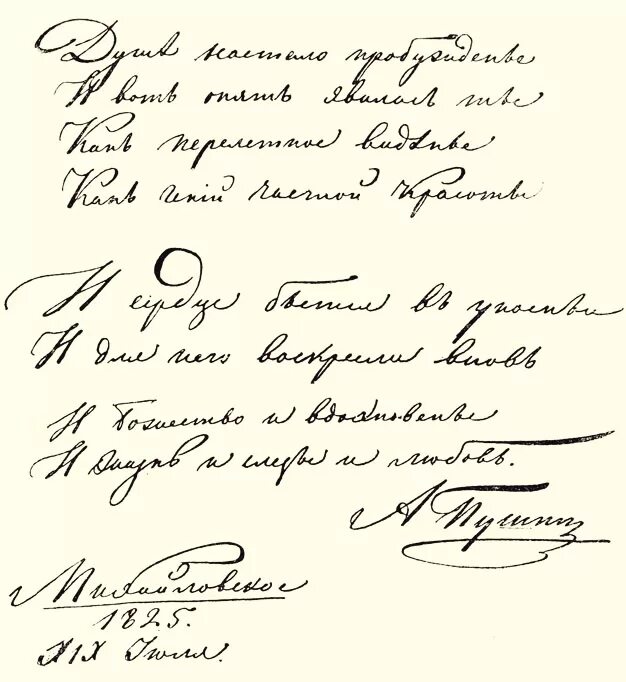 Душѣ настало пробужденье
И вотъ опять явилась ты
Какъ перелетное видѣнье
Какъ геній чистой красоты
И сердце бьется въ упоеньи
И для него воскресли вновь
И Божество и вдохновенье
И жизнь и слезы и любовь.
А Пушкин
Михайловское
1825.
XIX Іюля.